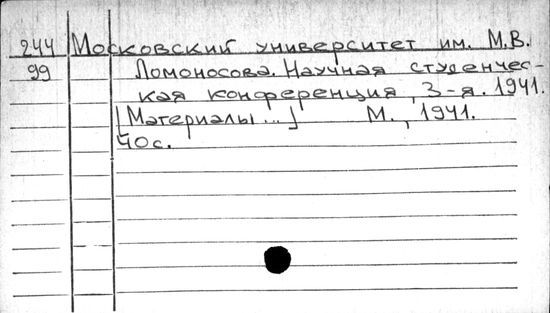 244 Московский университет им. М.В.
99 Ломоносова. Научная студенчес-
кая конференция, 3-я. 1941.
[Материалы ...] М., 1941.
40с.